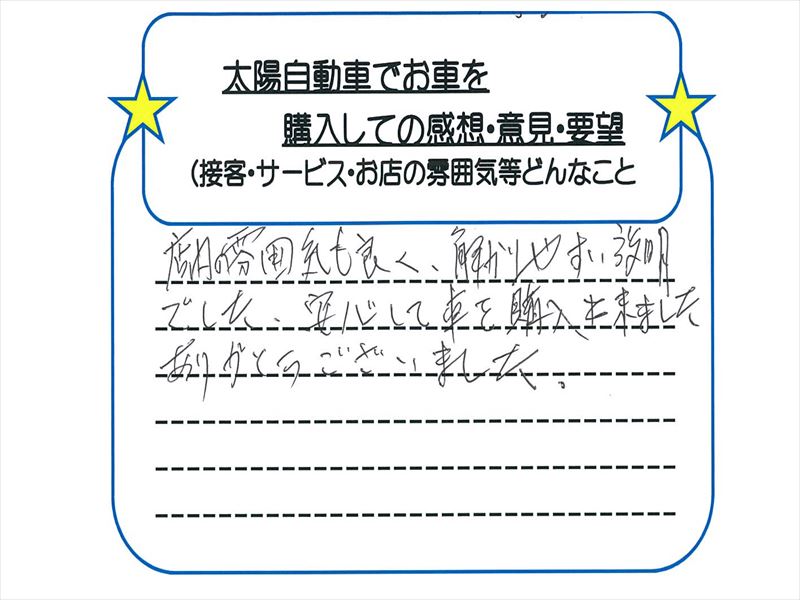 太陽自動車でお車を
購入しての感想・意見・要望
(接客・サービス・お店の雰囲気等どんなこと
店内の雰囲気も良く、解かりやすい説明
でした、安心して車を購入出来ました
ありがとうございました。